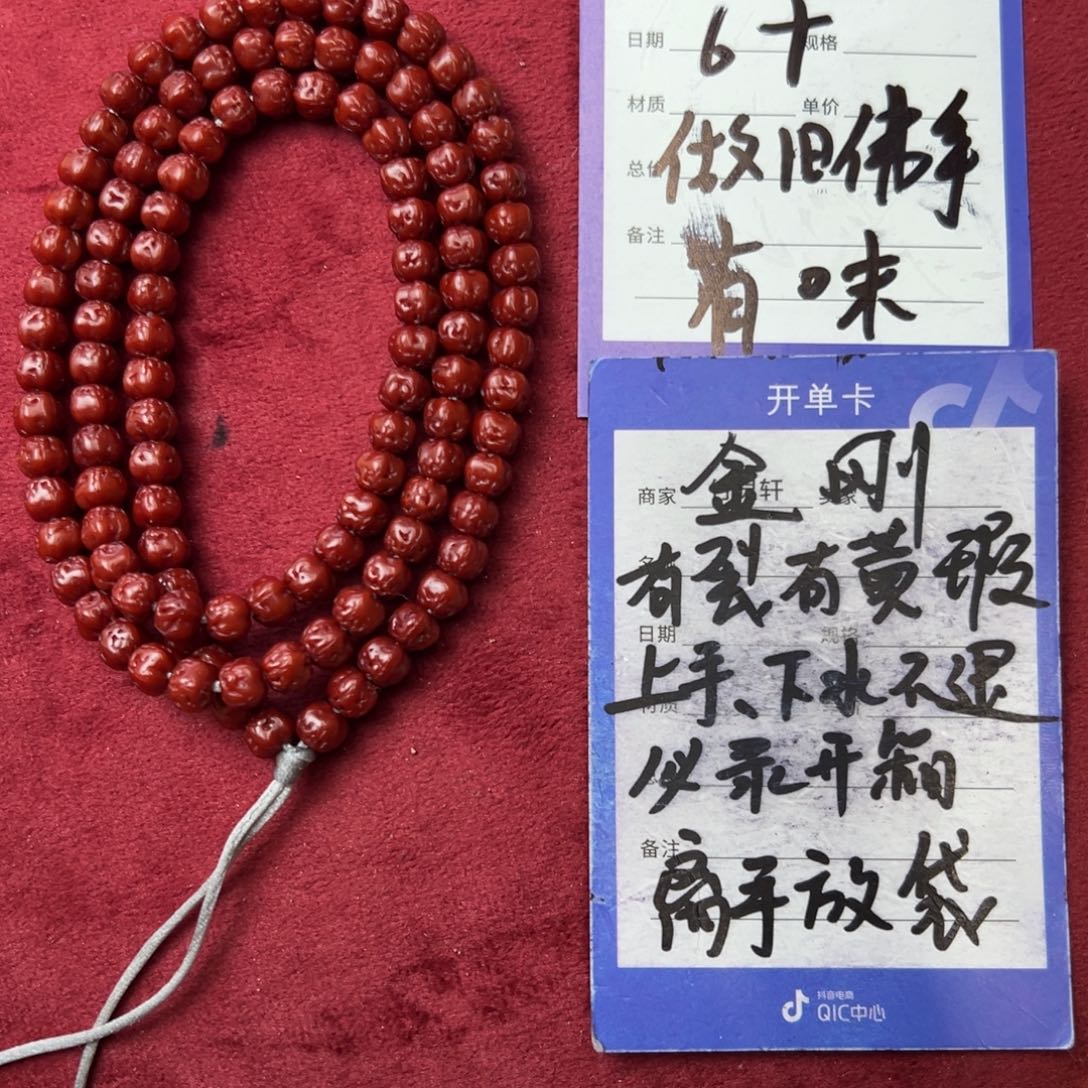 日期 6十 规格
材质 单价
总价 做旧佛手
备注
有味
开单卡
商家 金刚 轩
有裂有黄瑕
日期 规格
上手、下水不退
材质
必录开箱
备注
离手放袋
抖音电商
QIC中心